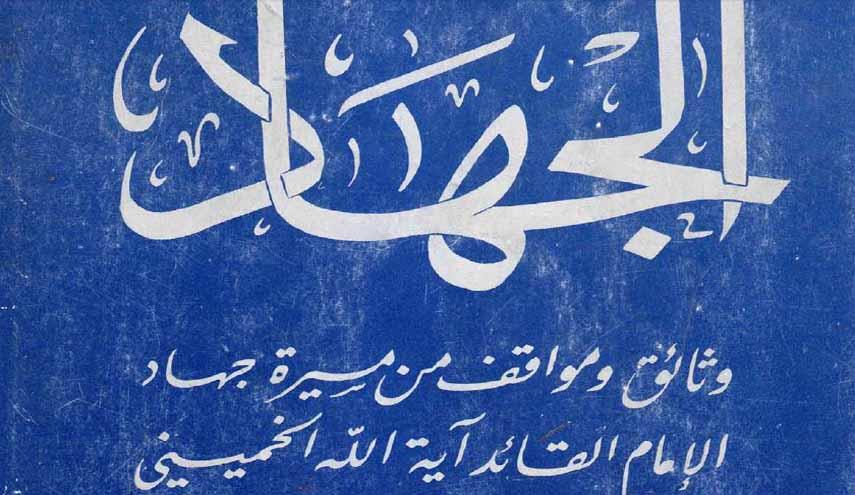 الجهاد
وثائق ومواقف من مسيرة جهاد
الإمام القائد آية الله الخميني